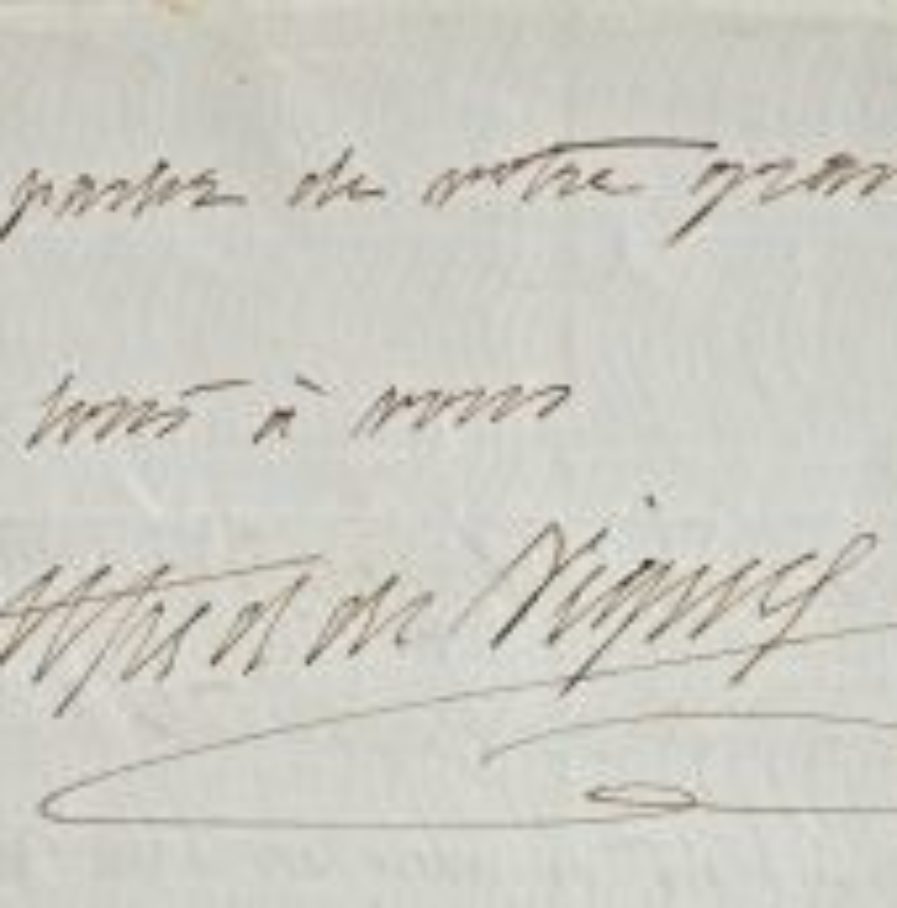 parler de votre gran
tout à vous
Alfred de Vigny